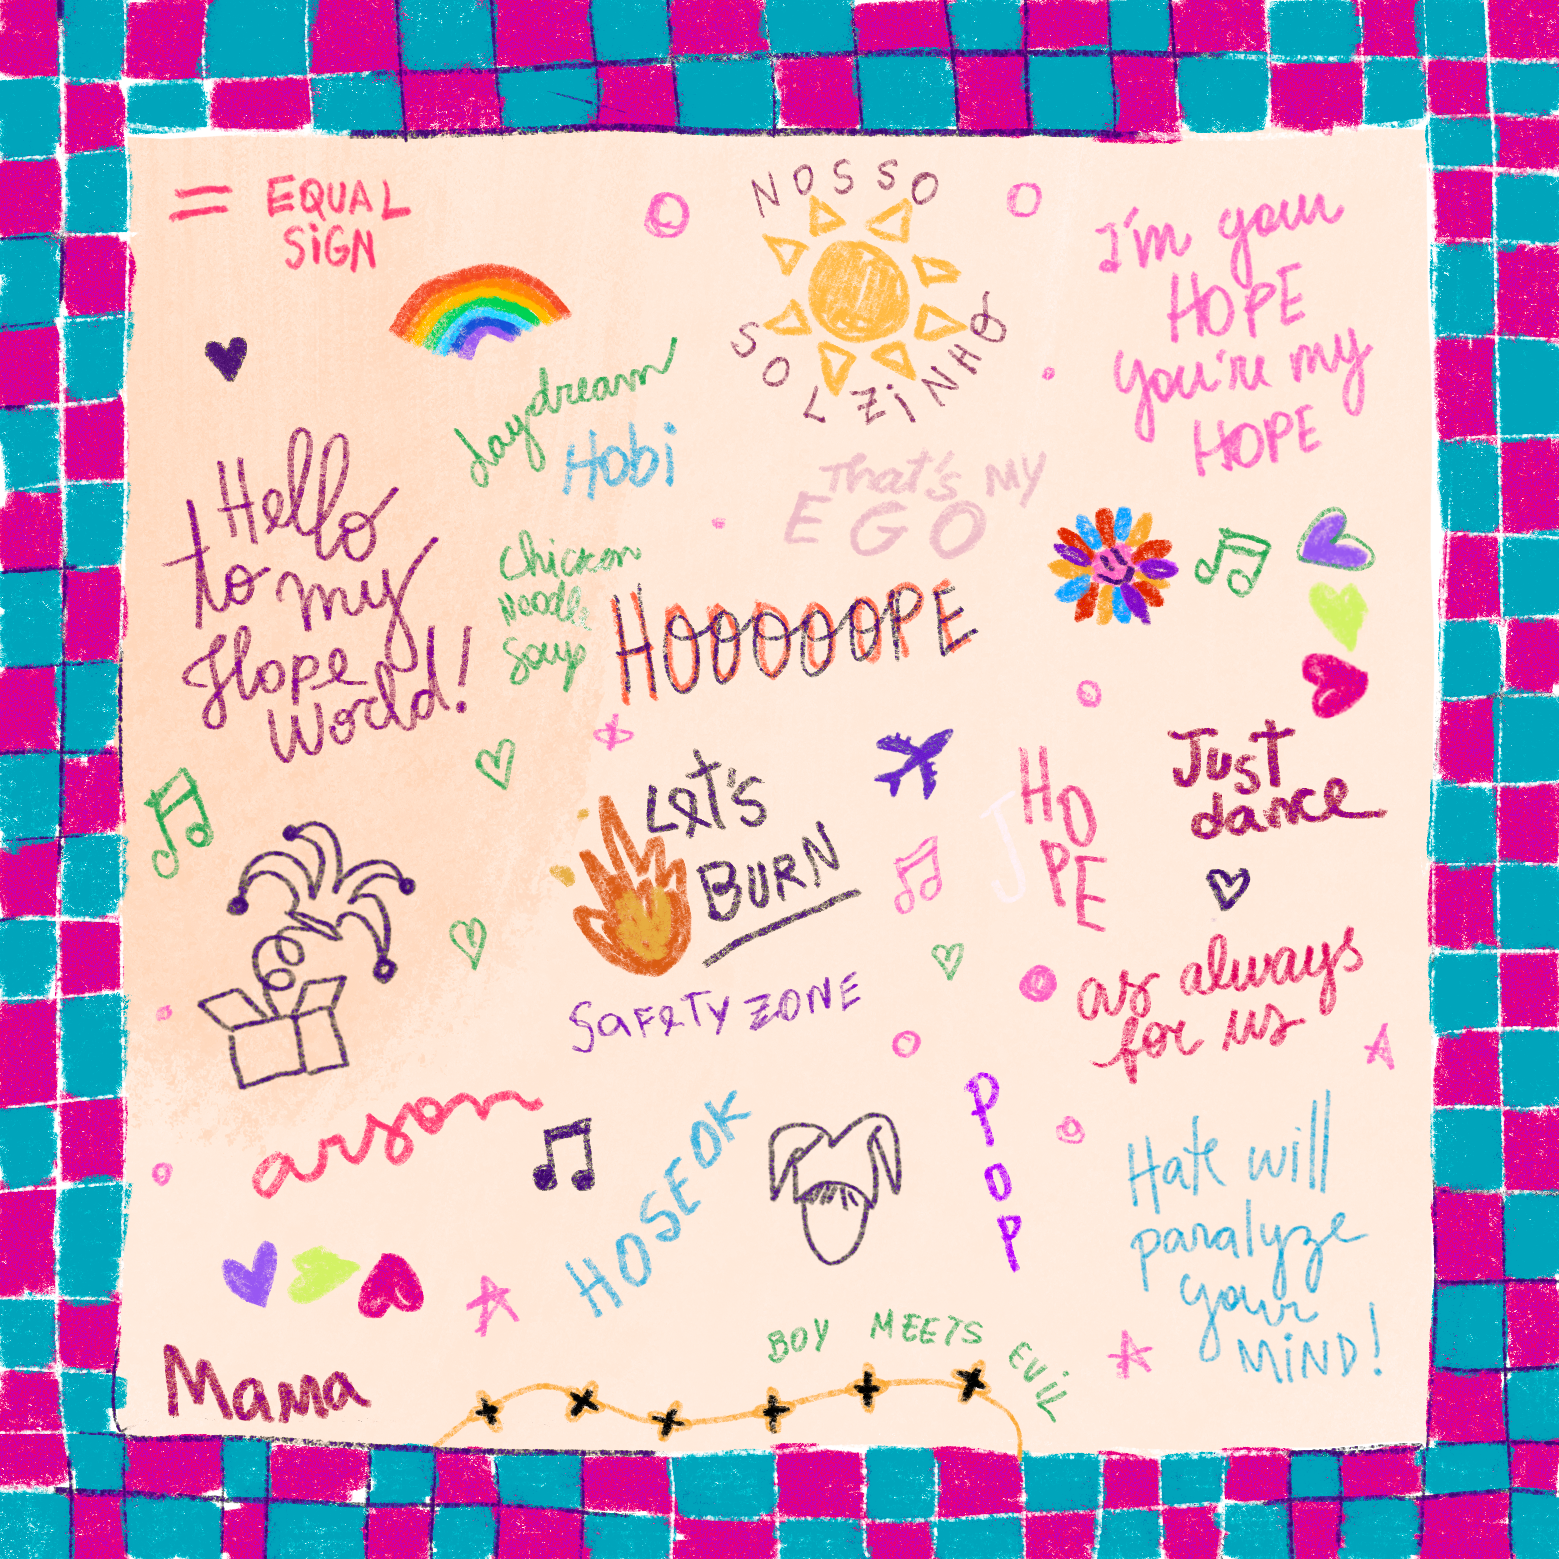 = EQUAL
SiGN
NOSSO
SOLZiNHO
I'm your
HOPE
you're my
HOPE
daydream
Hobi
That's MY
EGO
Hello
to my
Hope
World!
chicken
Noodle
Soup
HOOOOOPE
Let's
BURN
J
HO
PE
Just
dance
SaFeTy ZONE
as always
for us
arson
HOSEOK
POP
Hate will
paralyze
your
MiND!
BOY MEETS EViL
Mama